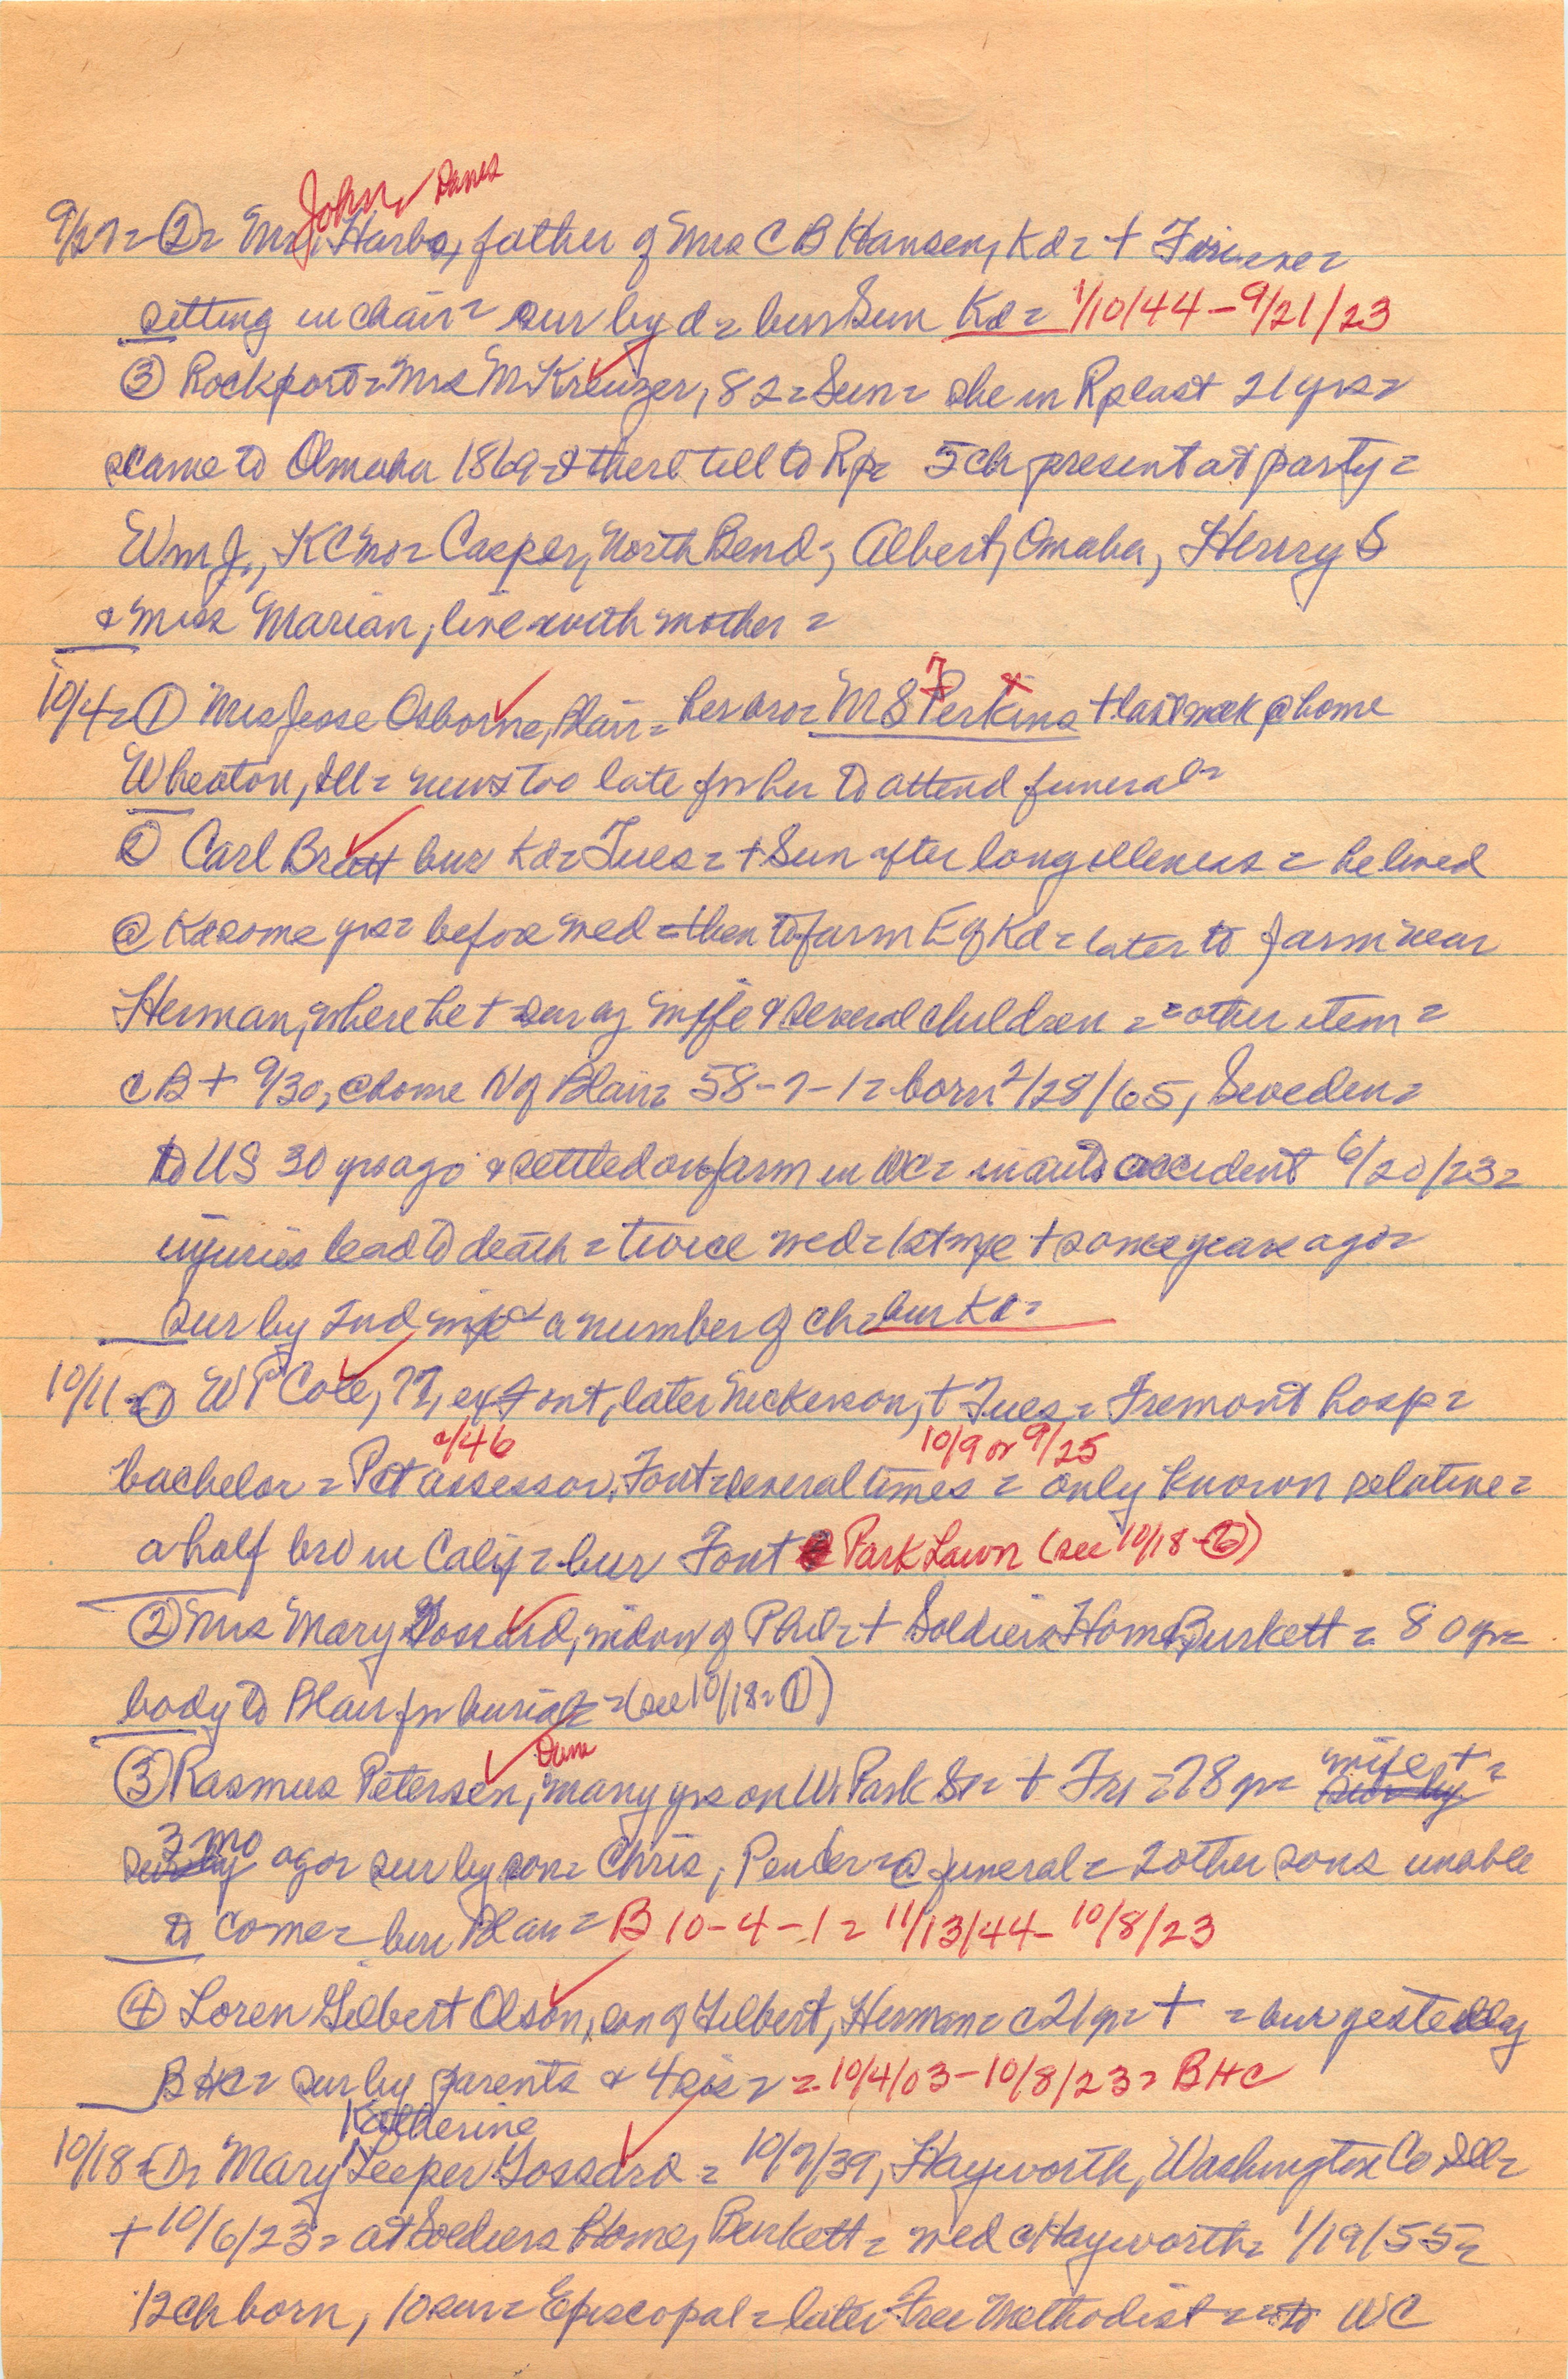 John Danes
9/27 = ② = Mr. Harbs, father of Mrs C B Hansen, Kd = + Fri eve =
sitting in chair = sur by d = bur Sun Kd = 1/10/44 - 9/21/23
③ Rockport = Mrs M Kreuzer, 82 = Sun = she in Rp last 21 yrs =
came to Omaha 1869 & there till to Rp = 5 ch present at party =
Wm J., KC Mo = Casper, North Bend; Albert, Omaha, Henry S
& Miss Marian, live with mother =
10/4 = ① Mrs Jesse Osborne, Blair = her bro = M S Perkins + last week @ home
Wheaton, Ill = news too late for her to attend funeral =
② Carl Bratt bur Kd = Tues = + Sun after long illness = he lived
@ Kd some yrs = before med = then to farm E of Kd = later to farm near
Herman, where he + sur by wife & several children = = other item =
CB + 9/30, @ home N of Blair = 58-7-1 = born 2/28/65, Sweden =
to US 30 yrs ago & settled on farm in WC = in auto accident 6/20/23 =
injuries lead to death = twice med = 1st wife + some years ago =
sur by 2nd wife & a number of ch = bur Kd =
10/11 = ① W P Cole, 77, ex Font, later Nickerson, + Tues = Fremont hosp =
c/46 10/9 or 9/25
bachelor = Pct assessor, Font = several times = only known relative =
a half bro in Calif = bur Font Park Lawn (see 10/18-⑥)
② Mrs Mary Gossard, widow of Phil = + Soldiers Home, Burkett = 80 yr =
body to Blair for burial = (see 10/18 = ①)
Dane
③ Rasmus Petersen, many yrs on W Park St = + Fri = 78 yr = wife + =
3 mo ago = sur by son = Chris, Pender = @ funeral = 2 other sons unable
to come = bur Blair = B 10-4-1 = 11/13/44 - 10/8/23
④ Loren Gilbert Olson, son of Gilbert, Herman = c 21 yr = + = bur yesterday
BHC = sur by parents & 4 sis = = 10/4/03 - 10/8/23 = BHC
Katherine
10/18 = ① = Mary Leeper Gossard = 10/7/39, Hayworth, Washington Co Ill =
+ 10/6/23 = at Soldiers Home, Burkett = med @ Hayworth = 1/19/55 =
12 ch born, 10 sur = Episcopal = later Free Methodist = = to WC